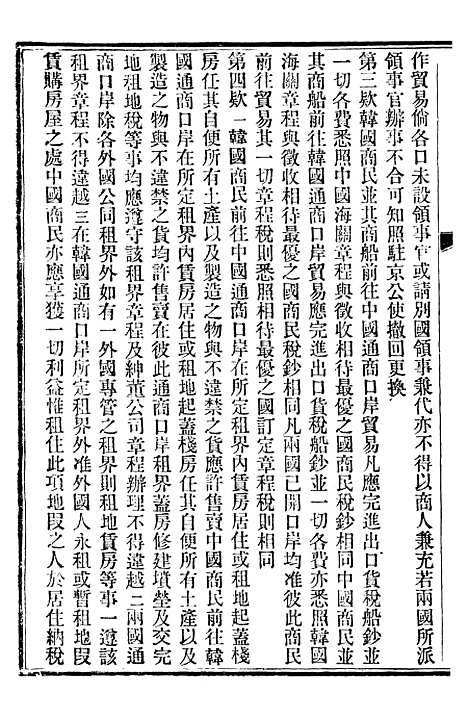 作貿易倘各口未設領事官或請別國領事兼代亦不得以商人兼充若兩國所派
領事官辦事不合可知照駐京公使撤回更換
第三欵韓國商民並其商船前往中國通商口岸貿易凡應完進出口貨稅船鈔並
一切各費悉照中國海關章程與徵收相待最優之國商民稅鈔相同中國商民並
其商船前往韓國通商口岸貿易應完進出口貨稅船鈔並一切各費亦悉照韓國
海關章程與徵收相待最優之國商民稅鈔相同凡兩國已開口岸均准彼此商民
前往貿易其一切章程稅則悉照相待最優之國訂定章程稅則相同
第四欵一韓國商民前往中國通商口岸在所定租界內賃房居住或租地起蓋棧
房任其自便所有土產以及製造之物與不違禁之貨應許售賣中國商民前往韓
國通商口岸在所定租界內賃房居住或租地起蓋棧房任其自便所有土產以及
製造之物與不違禁之貨均許售賣在彼此通商口岸租界蓋房修建墳塋及交完
地租地稅等事均應遵守該租界章程及紳董公司章程辦理不得違越二兩國通
商口岸除各外國公同租界外如有一外國專管之租界則租地賃房等事一遵該
租界章程不得違越三在韓國通商口岸所定租界外准外國人永租或暫租地叚
賃購房屋之處中國商民亦應享獲一切利益惟租住此項地叚之人於居住納稅